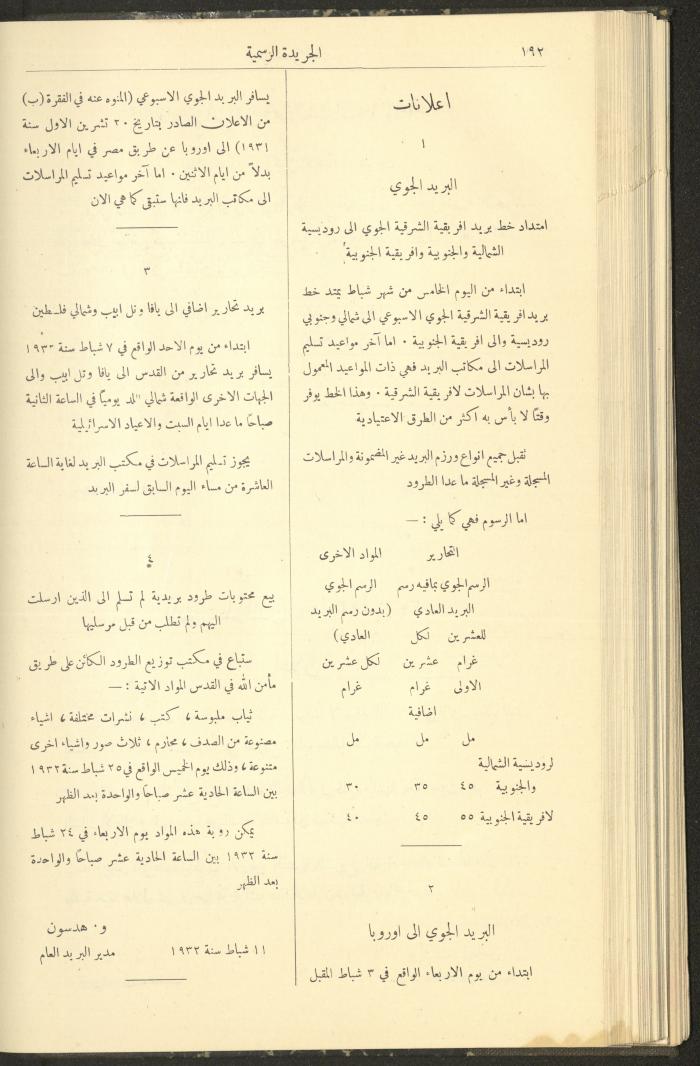 ١٩٢
الجريدة الرسمية
اعلانات
١
البريد الجوي
امتداد خط بريد افريقية الشرقية الجوي الى روديسية
الشمالية والجنوبية وافريقية الجنوبية
ابتداء من اليوم الخامس من شهر شباط يمتد خط
بريد افريقية الشرقية الجوي الاسبوعي الى شمالي وجنوبي
روديسية والى افريقية الجنوبية ٠ اما آخر مواعيد تسليم
المراسلات الى مكاتب البريد فهي ذات المواعيد المعمول
بها بشان المراسلات لافريقية الشرقية ٠ وهذا الخط يوفر
وقتًا لا بأس به اكثر من الطرق الاعتيادية
تقبل جميع انواع ورزم البريد غير المضمونة والمراسلات
المسجلة وغير المسجلة ما عدا الطرود
اما الرسوم فهي كما يلي : —
التحارير المواد الاخرى
الرسم الجوي بمافيه رسم الرسم الجوي
البريد العادي (بدون رسم البريد
للعشرين لكل العادي)
غرام عشرين لكل عشرين
الاولى غرام غرام
اضافية
مل مل مل
لروديسية الشمالية
والجنوبية ٤٥ ٣٥ ٣٠
لافريقية الجنوبية ٥٥ ٤٥ ٤٠
٢
البريد الجوي الى اوروبا
ابتداء من يوم الاربعاء الواقع في ٣ شباط المقبل
يسافر البريد الجوي الاسبوعي (المنوه عنه في الفقرة (ب)
من الاعلان الصادر بتاريخ ٢٠ تشرين الاول سنة
١٩٣١) الى اوروبا عن طريق مصر في ايام الاربعاء
بدلاً من ايام الاثنين ٠ اما آخر مواعيد تسليم المراسلات
الى مكاتب البريد فانها ستبقى كما هي الان
٣
بريد تحارير اضافي الى يافا وتل ابيب وشمالي فلسطين
ابتداء من يوم الاحد الواقع في ٧ شباط سنة ١٩٣٢
يسافر بريد تحارير من القدس الى يافا وتل ابيب والى
الجهات الاخرى الواقعة شمالي اللد يوميًا في الساعة الثانية
صباحًا ما عدا ايام السبت والاعياد الاسرائيلية
يجوز تسليم المراسلات في مكتب البريد لغاية الساعة
العاشرة من مساء اليوم السابق لسفر البريد
٤
بيع محتويات طرود بريدية لم تسلم الى الذين ارسلت
اليهم ولم تطلب من قبل مرسليها
ستباع في مكتب توزيع الطرود الكائن على طريق
مأمن الله في القدس المواد الاتية : —
ثياب ملبوسة ، كتب ، نشرات مختلفة ، اشياء
مصنوعة من الصدف ، محارم ، ثلاث صور واشياء اخرى
متنوعة ، وذلك يوم الخميس الواقع في ٢٥ شباط سنة ١٩٣٢
بين الساعة الحادية عشر صباحًا والواحدة بعد الظهر
يمكن روية هذه المواد يوم الاربعاء في ٢٤ شباط
سنة ١٩٣٢ بين الساعة الحادية عشر صباحًا والواحدة
بعد الظهر
و ٠ هدسون
١١ شباط سنة ١٩٣٢ مدير البريد العام